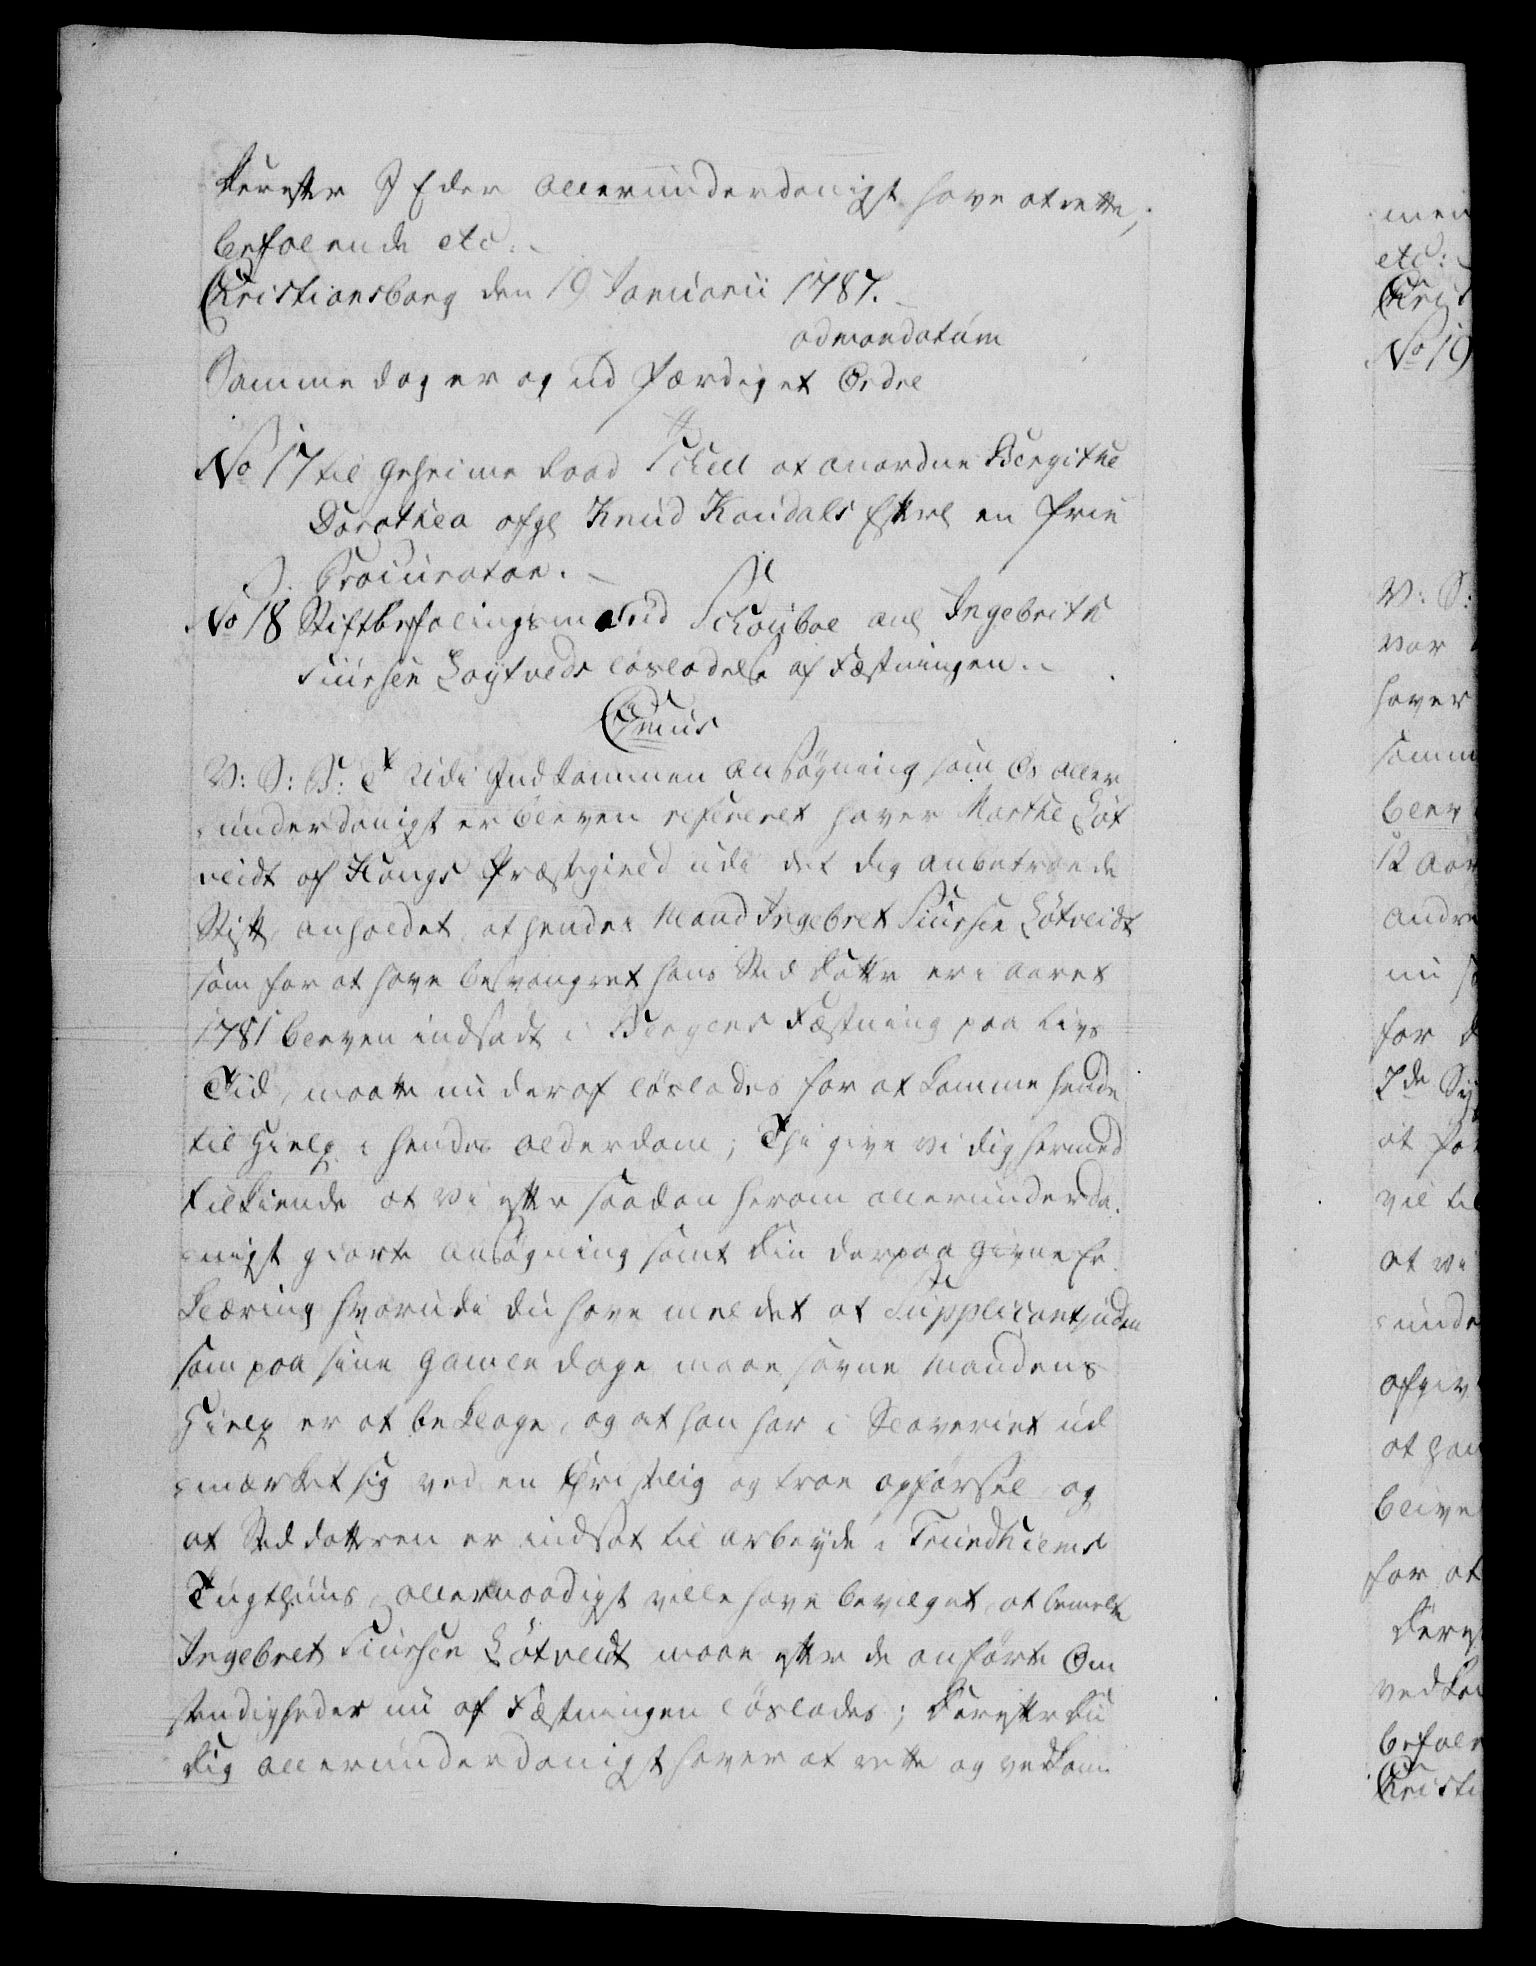 Derefter I Eder allerunderdanigst have at rette,
befalende etc.
Christiansborg den 19 Januarii 1787.
ad mandatum
Samme dag er og ud færdiget Ordre
No 17 til Geheime Raad Schell at anordne Bergithe
Dorothea afgl Knud Koudals Efterl en frie
Procurator.
No 18 Stiftbefalingsmand Schouboe anl Ingebrith
Siursen Løytveds løsladelse af Fæstningen.
Chmus
V: S: G: T Udi Indkommen Ansøgning som Os aller
underdanigst er bleven refereret haver Marthe Løt
veidt af Hougs Præstegield udi det dig anbetroede
Stift, anholdet, at hendes Mand Ingebret Siursen Løtveidt
som for at have besvangret hans Sted Datter er i Aaret
1781 bleven indsadt i Bergens Fæstning paa Livs
Tid, maatte nu deraf løslades for at komme hende
til Hielp i hendes Alderdom; Thi give vi dig hermed
tilkiende at vi efter saadan herom allerunderda-
nigst giorte Ansøgning samt Din derpaa givne Er
klæring hvorudi du have meldet at Supplicantinden
som paa sine gamle dage maae savne Mandens
Hielp er at beklage, og at han har i Slaveriet ud
mærket sig ved en Christelig og troe opførsel og
at Sted dotteren er indsat til arbeyde i Trundhiems
Tugthuus, allernaadigst ville have bevilget, at bemelte
Ingebret Siursen Løtveidt maae efter de anførte Om
stændigheder nu af Fæstningen løslades; Derefter Du
dig allerunderdanigst haver at rette og vedkom-
men
etc:
No 19
V: S:
var
haver
somm
blev
12 Aar
andre
nu
for
7de
at for
vil til
at vi
unde
afgiv
at han
blive
for at
Deref
vedkom
befale
Christi